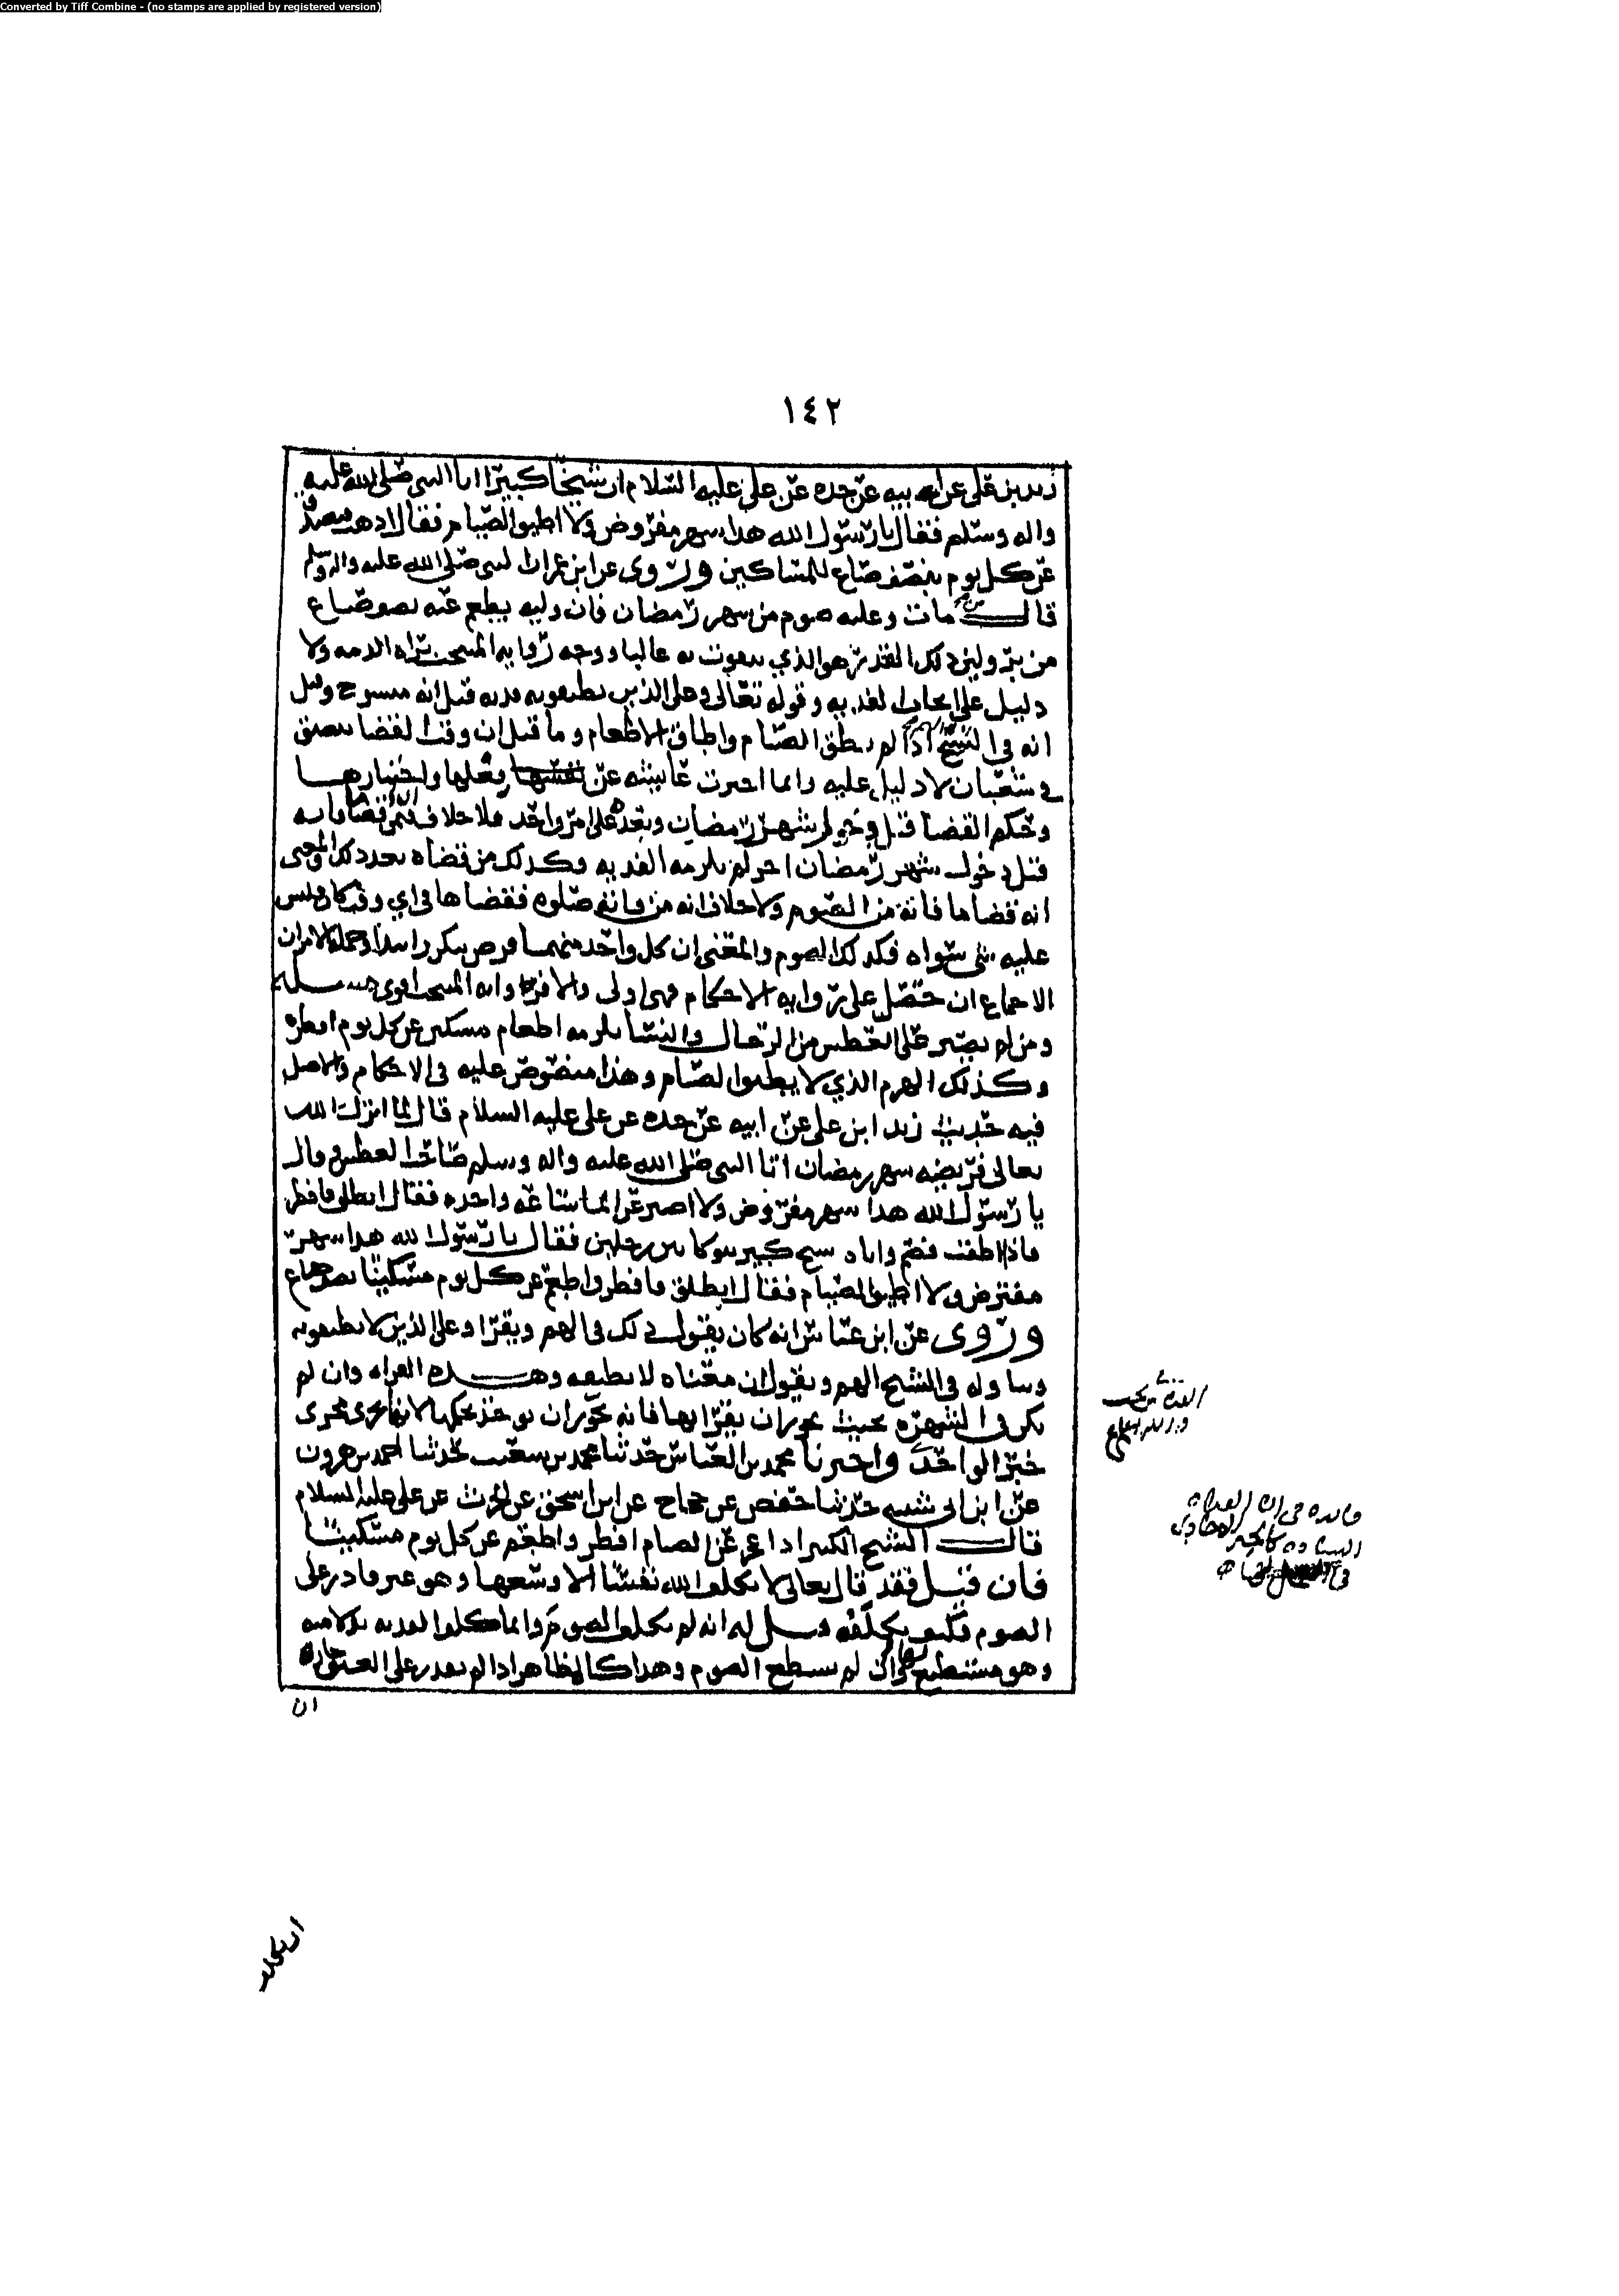 Converted by Tiff Combine - (no stamps are applied by registered version)
١٤٢
زيد بن علي عن ابيه عن جده عن علي عليه السلام ان شيخا كبيرا اتا النبي صلى الله عليه
واله وسلم فقال يا رسول الله هذا شهر مفروض ولا اطيق الصيام فقال اذهب فتصدق
عن كل يوم بنصف صاع للمساكين وروى عن ابن عمر ان النبي صلى الله عليه واله وسلم
قال من مات وعليه صوم من شهر رمضان فان وليه يطعم عنه نصف صاع
من بر ولان ذلك القدر هو الذي يتقوت به غالبا ووجه رواية المنتخب براه الذمه ولا
دليل على ايجاب الفديه وقوله تعالى وعلى الذين يطيقونه فديه قيل انه منسوخ وقيل
انه في الشيخ الهم اذا لم يطق الصيام واطاق الاطعام وما قيل ان وقت القضا يتضيق
في شعبان لا دليل عليه وانما اخبرت عايشه عن فعلها واختيارها
وحكم القضا قبل دخول شهر رمضان وبعده على امر واحد فلا خلاف ان من قضا ما فاته
قبل دخول شهر رمضان اخر لم يلزمه الفديه وكذلك من قضاه بعد ذلك والمعنى
انه قضا ما فاته من الصوم ولا خلاف انه من فاته صلوه فقضاها في اي وقت كان فليس
عليه شي سواه فكذلك الصوم والمعنى ان كل واحد منهما فرض يتكرر
الاجماع ان حصل على رواية الاحكام فهي اولى والا فرواية المنتخب اقوى مسئله
ومن لم يصبر على العطش من الرجال والنسا يلزمه اطعام مسكين عن كل يوم افطره
وكذلك الهرم الذي لا يطيق الصيام وهذا منصوص عليه في الاحكام والاصل
فيه حديث زيد ابن علي عن ابيه عن جده عن علي عليه السلام قال لما انزل الله
تعالى فريضه شهر رمضان اتا النبي صلى الله عليه واله وسلم صاحب العطش فقال
يا رسول الله هذا شهر مفروض ولا اصبر عن الما ساعه واحده فقال انطلق فافطر
فاذا اطقت فصم واتاه شيخ كبير يتوكا بين رجلين فقال يا رسول الله هذا شهر
مفترض ولا اطيق الصيام فقال انطلق فافطر واطعم عن كل يوم مسكينا نصف صاع
وروى عن ابن عباس انه كان يقول ذلك في الهم ويقرا وعلى الذين لا يطيقونه
ويتاوله في الشيخ الهم ويقول ان معناه لا يطيقه وهذه القراه وان لم
تكن في الشهره بحيث يجوز ان يقرا بها فانه يجوز ان يوخذ بحكمها لانها تجري مجرى
خبر الواحد واخبرنا محمد بن العباس حدثنا محمد بن شعيب حدثنا احمد بن هرون
عن ابن ابي شيبه حدثنا حفص عن حجاج عن ابي اسحق عن الحرث عن علي عليه السلام
قال الشيخ الكبير اذا عجز عن الصيام افطر واطعم عن كل يوم مسكينا
فان قيل فقد قال تعالى لا يكلف الله نفسا الا وسعها وهو غير قادر على
الصوم فكيف يكلفه قيل له انه لم يكلف الصوم وانما كلف الفديه بدلا منه
وهو مستطيع لها وان لم يستطع الصوم وهذا كالمظاهر اذا لم يقدر على العتق جاز
ان